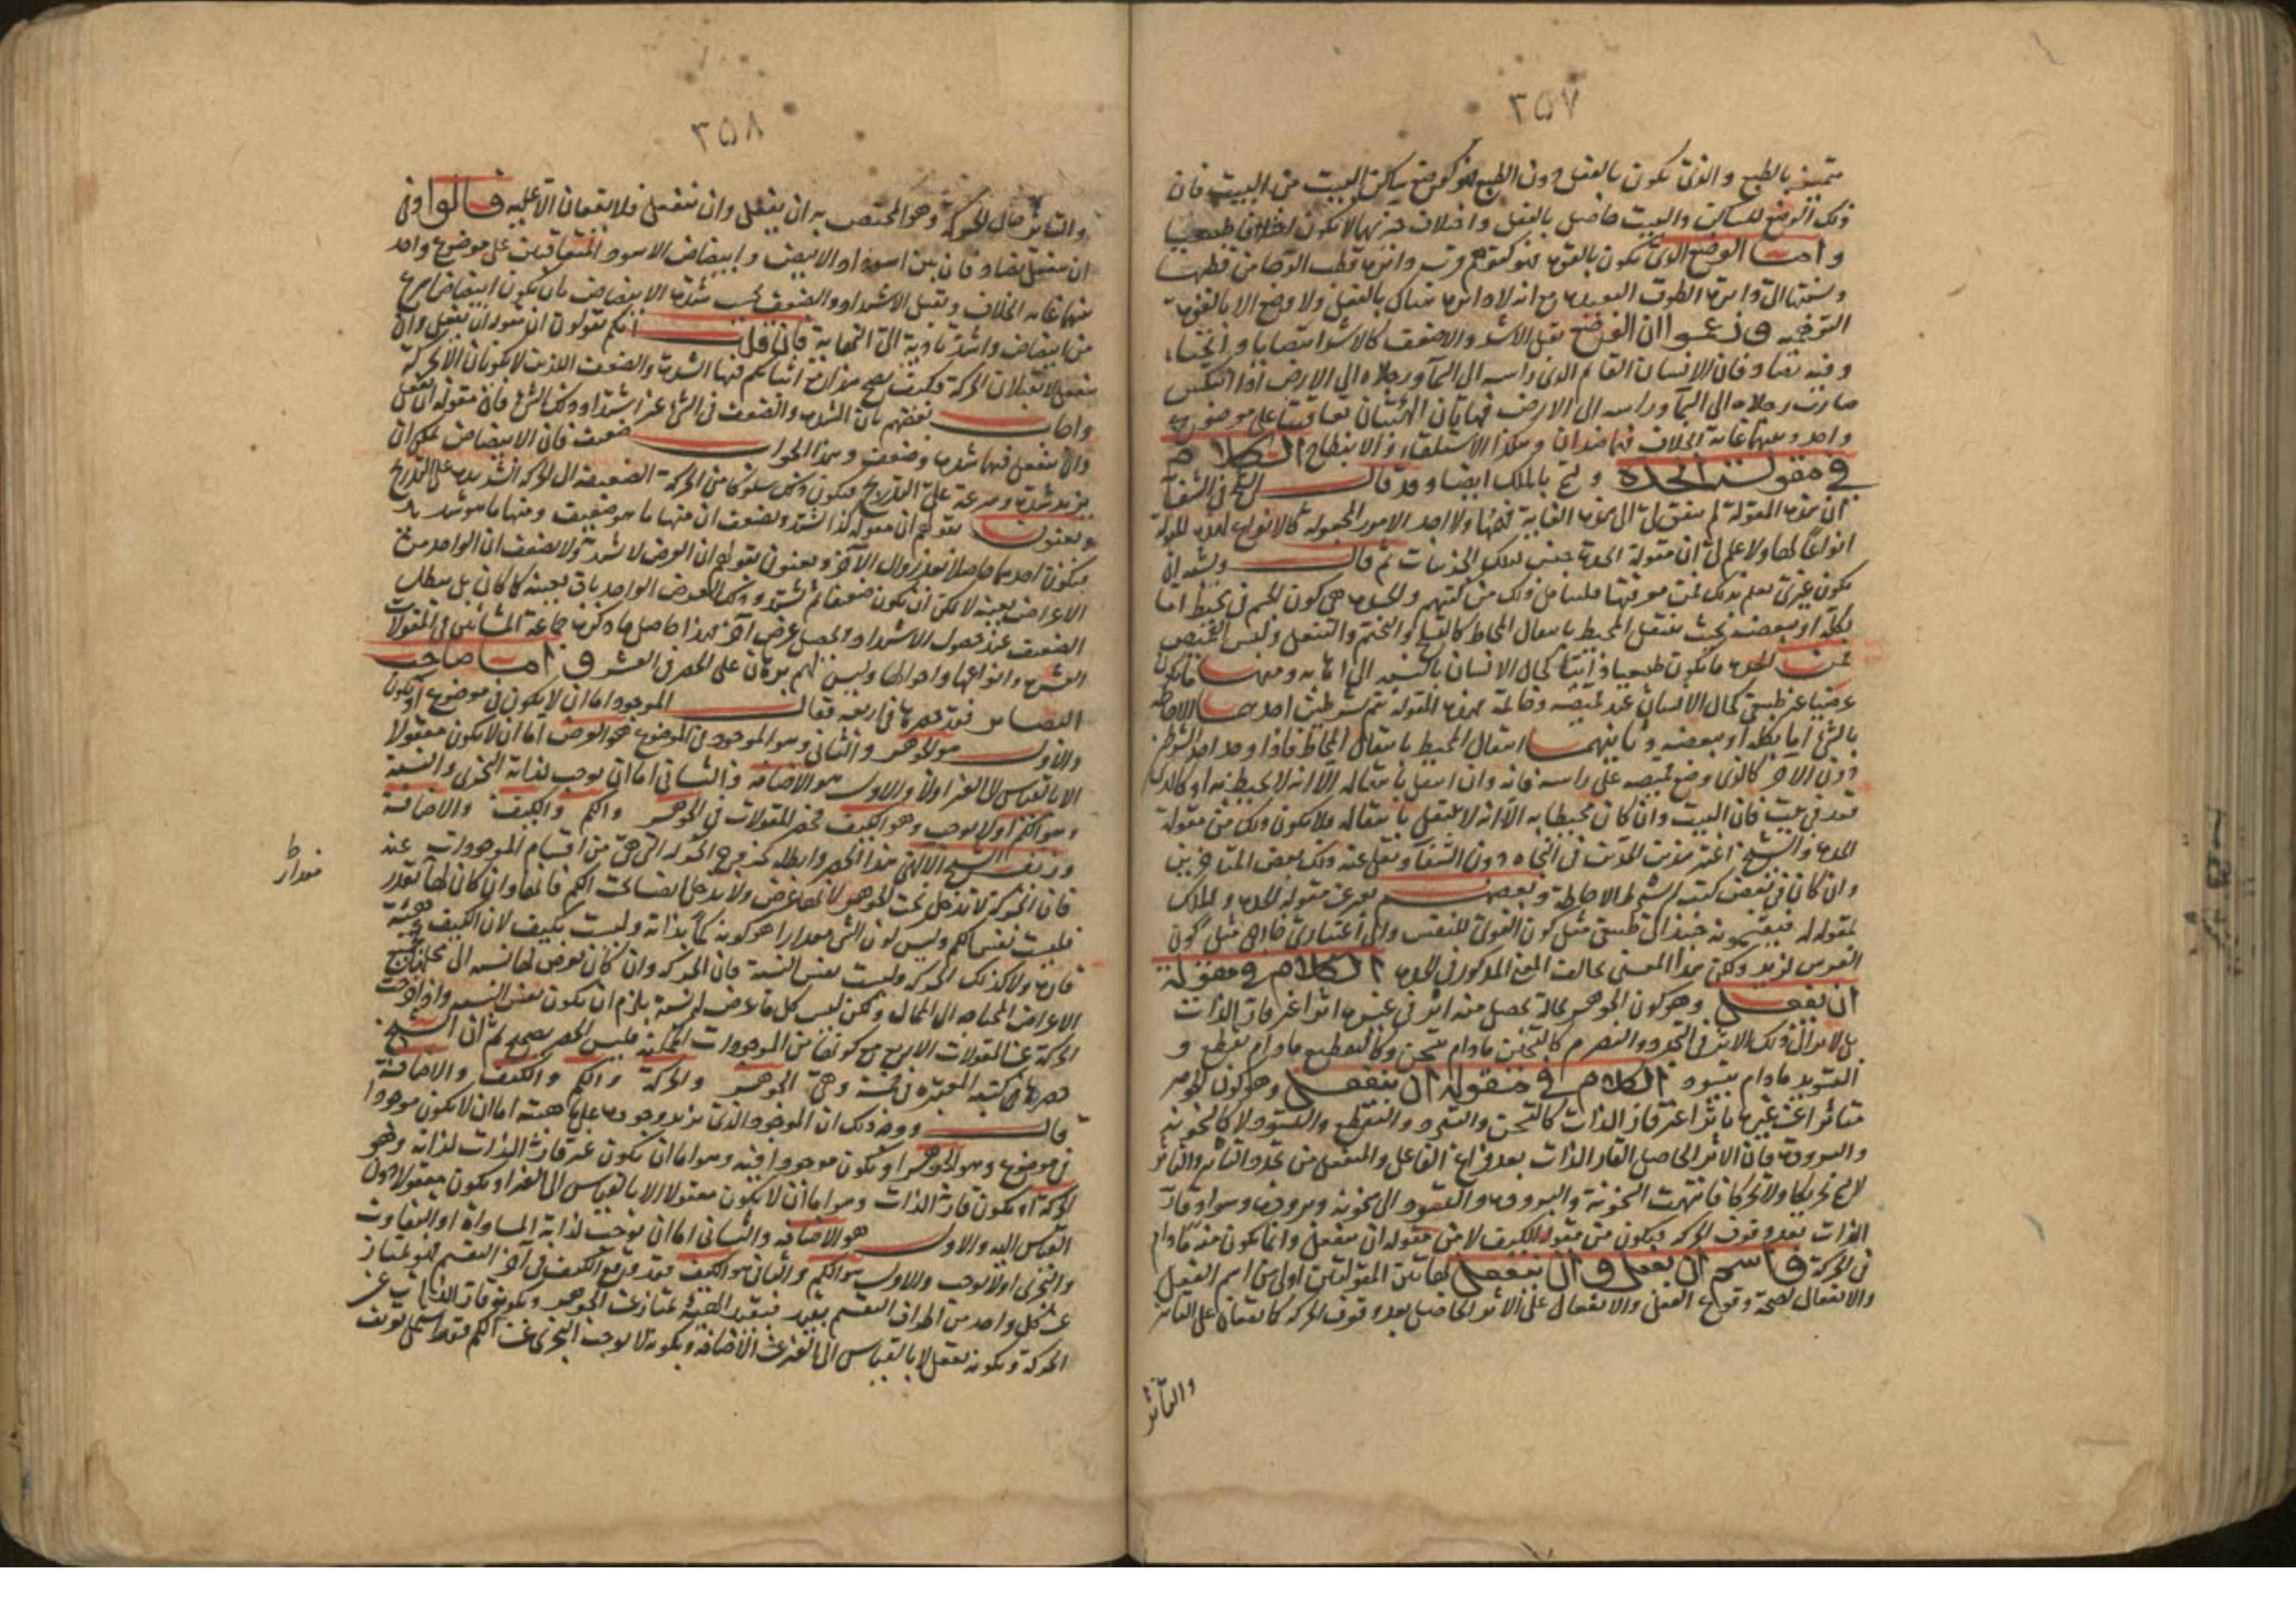 ٣٥٧
متميز بالطبع والذى يكون بالفعل دون الطبع فهو كوضع ساكن البيت من البيت فان
ذلك الوضع للساكن والبيت حاصل بالفعل واختلاف جزئيهما لا يكون اختلافا طبيعيا
واما الوضع الذى يكون بالقوة فهو كتوهم قرب دائرة قطب الرحا من قطبها
ونسبتها الى دائرة الطوف البعيدة مع انه لا دائرة هناك بالفعل ولا وضع الا بالقوة
التوهمية وزعموا ان الوضع يقبل الاشد والاضعف كالاشد انتصابا وانحناء
وفيه تضاد فان الانسان القائم الذى راسه الى السماء ورجلاه الى الارض اذا انتكس
صارت رجلاه الى السماء وراسه الى الارض فهاتان الهيئتان تعاقبتا على موضوع
واحد وبينهما غاية الخلاف فهما ضدان وهكذا الاستلقاء والانبطاح الكلام
في مقولة الجده ويسمى بالملك ايضا وقد قال الشيخ فى الشفاء
ان هذه المقولة لم يتفق لى الى هذه الغاية فهمها ولا احد الامور المجعولة كالانواع لهذه المقولة
انواعا لها ولا علم لى ان مقولة الجدة جنس لتلك الجزئيات ثم قال ويشبه ان
يكون غيرى يعلم ذلك فمن معرفتها فليتأمل ذلك من كتبهم والجدة هى كون الجسم فى محيط اما
بكله او ببعضه بحيث ينتقل المحيط بانتقال المحاط كالتسلح والتختم والتنعل ولبس القميص
فمن الجدة ما يكون طبيعيا ذاتيا كحال الانسان بالنسبة الى اهابه ومنها ما يكون
عرضيا غير طبيعى كحال الانسان عند قميصه وخاتمه وهذه المقولة تتم بشرطين احدهما الاحاطة
بالشئ اما بكله او ببعضه وثانيهما انتقال المحيط بانتقال المحاط فاذا وجد احد الشرطين
دون الآخر كالذى وضع قميصه على راسه فانه وان انتقل بانتقاله الا انه لا يحيط به او كالذى
قعد فى بيت فان البيت وان كان محيطا به الا انه لا ينتقل بانتقاله فلا يكون ذلك من مقولة
الجدة والشيخ اعتبر هذين القيدين فى النجاة دون الشفاء ونقل عنه ذلك بعض المتاخرين
وان كان فى بعض كتبه لم يشترط الاحاطة وبعضهم يعبر عن مقولة الجدة والملك
بمقولة له فيقسمونه حينئذ الى طبيعى مثل كون القوى للنفس والى اعتبارى خارجى مثل كون
الفرس لزيد ولكن هذا المعنى يخالف المعنى المذكور فى الجدة الكلام في مقولة
ان يفعل وهو كون الجوهر بحالة يحصل منه اثر فى غيره اثرا غير قار الذات
بل لا يزال ذلك الاثر فى التجدد والتصرم كالتسخين مادام يتسخن وكالتقطيع مادام يتقطع و
التسويد مادام يتسود الكلام في مقولة ان ينفعل وهو كون الجوهر
متاثرا عن غيره تاثرا غير قار الذات كالتسخن والتبرد والتقطع والتسود لا كالسخونة
والبرودة فان الاثر الحاصل القار الذات بعد فراغ الفاعل والمنفعل من تجدد التاثير والتاثر
لا يسمى تحريكا ولا تحركا فانتهت السخونة والبرودة والتسود الى سخونة وبرودة وسواد قار
الذات بعد وقوف الحركة فيكون من مقولة الكيف لا من مقولة ان ينفعل وانما يكون منه مادام
فى الحركة فاسم ان يفعل وان ينفعل لهاتين المقولتين اولى من اسم الفعل
والانفعال لصحة وقوع الفعل والانفعال على الاثر الحاصل بعد وقوف الحركة كايقعان على التاثير
والتاثر
٣٥٨
والتاثر حال الحركة وهو المختص به ان يفعل وان ينفعل فلا يقعان الا عليه قالوا وفى
ان ينفعل تضاد فان بين اسوداد الابيض وابيضاض الاسود المتعاقبين على موضوع واحد
بينهما غاية الخلاف ويقبل الاشتداد والضعف بحسب شدة الابيضاض بان يكون ابيضاض اسرع
من ابيضاض واشد تادية الى النهاية فان قلت انكم تقولون ان مقولة ان يفعل وان
ينفعل لا تقبلان الحركة فكيف يصح مع ذلك اثباتكم فيها الشدة والضعف اللذين لا يكونان الا بحركة
واجاب بعضهم بان الشدة والضعف فى الشئ غير اشتداد ذلك الشئ فان مقولة ان يفعل
وان ينفعل فيها شدة وضعف وهذا الجواب ضعيف فان الابيضاض يمكن ان
يزيد شدة وسرعة على التدريج فيكون ذلك سلوكا من الحركة الضعيفة الى الحركة الشديدة على التدريج
ويعنون بقولهم ان مقولة كذا تشتد وتضعف ان منها ما هو ضعيف ومنها ما هو شديد
فيكون احدهما حاصلا بعد زوال الآخر ويعنون بقولهم ان العرض لا يشتد ولا يضعف ان الواحد من
الاعراض بعينه لا يمكن ان يكون ضعيفا ثم يشتد وذلك العرض الواحد باق بعينه كما كان بل يبطل
الضعيف عند حصول الاشتداد ويحصل عرض آخر فهذا حاصل ما ذكره جماعة المشائين فى المقولات
العشر وانواعها واحوالها وليس لهم برهان على الحصر فى العشر واما صاحب
البصائر فقد حصرها فى اربعة فقال الموجود اما ان لا يكون فى موضوع او يكون
والاول هو الجوهر والثانى وهو الموجود فى الموضوع هو العرض اما ان لا يكون معقولا
الا بالقياس الى الغير اولا والاول هو الاضافة والثانى اما ان يوجب لذاته التجزى والنسبة
وهو الكم اولا يوجب وهو الكيف فحصر المقولات فى الجوهر والكم والكيف والاضافة
وزيف الشيخ الالهى هذا الحصر وابطله بخروج الحركة التى هى من اقسام الموجودات عنه
فان الحركة لا تدخل تحت الجوهر لانها عرض ولا تدخل ايضا تحت الكم فانها وان كان لها تقدر
فليست نفس الكم وليس كون الشئ مقدارا هو كونه كما بذاته وليست بكيف لان الكيف هيئة
قارة ولا كذلك الحركة وليست نفس النسبة فان الحركة وان كان يعرض لها نسبة الى محلها
الاعراض المحتاجة الى المحال ولكن ليس كل ما عرض له نسبة يلزم ان يكون نفس النسبة واذا خرجت
الحركة عن المقولات الاربع مع كونها من الموجودات الممكنة فليس الحصر بصحيح ثم ان الشيخ
حصرها فى كتبه المعتبرة فى خمسة وهى الجوهر والحركة والكم والكيف والاضافة
قال ووجه ذلك ان الموجود الذى يزيد وجوده على ماهيته اما ان لا يكون موجودا
فى موضوع وهو الجوهر او يكون موجودا فيه وهو اما ان يكون غير قار الذات لذاته وهو
الحركة او يكون قار الذات وهو اما ان لا يكون معقولا الا بالقياس الى الغير او يكون معقولا دون
القياس اليه والاول هو الاضافة والثانى اما ان يوجب لذاته المساواة او التفاوت
والتجزى اولا يوجب والاول هو الكم والثانى هو الكيف فقد وقع الكيف فى آخر التقسيم فهو يمتاز
عن كل واحد من اطراف التقسيم بقيد فبقيد الهيئة يمتاز عن الجوهر وبكونه قار الذات عن
الحركة وبكونه يعقل لا بالقياس الى الغير عن الاضافة وبكونه لا يوجب التجزى عن الكم فقد اشتمل تعريف
مقدار
ط